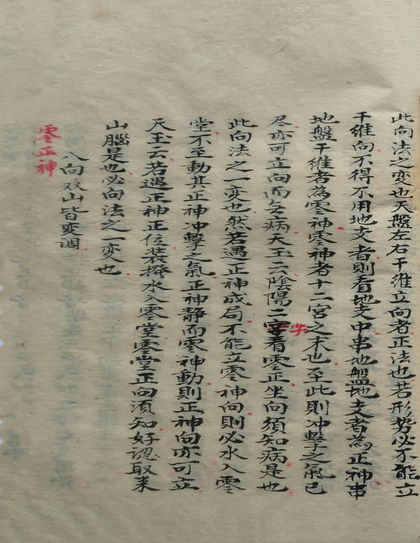 此向法之変也天盤左右干維立向者正法也若形势必不能立
干維向不得不用地支者則看地支中串地盤地支者為正神串
地盤干維者為零神零神者十二宮之末也至此則冲撃之氣已
尽亦可立向而無病天玉云陰陽二字看零正坐向須知病是也
此向法之一変也然若遇正神成局不能立零神向則必水入零
堂不至動其正神冲撃之氣正神静而零神動則正神向亦可立
天玉云若遇正神正位装撥水入零堂零堂正向須知好認取来
山脳是也必向法之一変也
八向双山皆変調
零正神